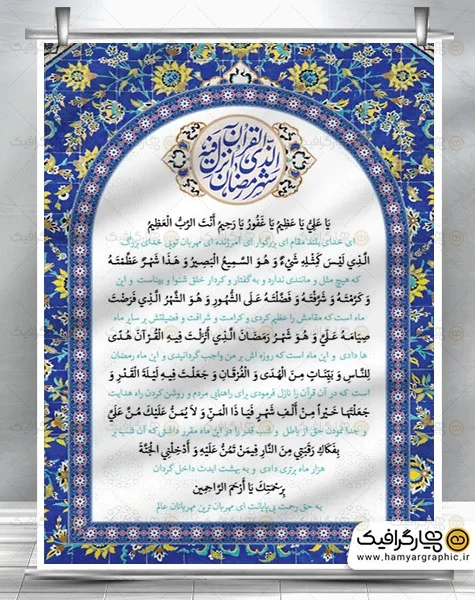 شهر رمضان الذی انزل فیه القرآن
یَا عَلِیُّ یَا عَظِیمُ یَا غَفُورُ یَا رَحِیمُ أَنْتَ الرَّبُّ الْعَظِیمُ
ای خدای بلند مقام ای بزرگوار ای آمرزنده ای مهربان تویی خدای بزرگ
الَّذِی لَیْسَ کَمِثْلِهِ شَیْءٌ وَ هُوَ السَّمِیعُ الْبَصِیرُ وَ هَذَا شَهْرٌ عَظَّمْتَهُ
که هیچ مثل و مانندی ندارد و به گفتار و کردار خلق شنوا و بیناست و این
وَ کَرَّمْتَهُ وَ شَرَّفْتَهُ وَ فَضَّلْتَهُ عَلَی الشُّهُورِ وَ هُوَ الشَّهْرُ الَّذِی فَرَضْتَ
ماه است که مقامش را عظیم کردی و کرامت و شرافت و فضیلتش بر سایر ماه
صِیَامَهُ عَلَیَّ وَ هُوَ شَهْرُ رَمَضَانَ الَّذِی أَنْزَلْتَ فِیهِ الْقُرْآنَ هُدًی
ها دادی و این ماه است که روزه اش بر من واجب گردانیدی و این ماه رمضان
لِلنَّاسِ وَ بَیِّنَاتٍ مِنَ الْهُدَی وَ الْفُرْقَانِ وَ جَعَلْتَ فِیهِ لَیْلَةَ الْقَدْرِ وَ
است که در آن قرآن را نازل فرمودی برای راهنمایی مردم و روشن کردن راه هدایت
جَعَلْتَهَا خَیْراً مِنْ أَلْفِ شَهْرٍ فَیَا ذَا الْمَنِّ وَ لاَ یُمَنُّ عَلَیْکَ مُنَّ عَلَیَّ
و جدا نمودن حق از باطل و شب قدر را در این ماه مقرر داشتی که آن شب بر
بِفَکَاکِ رَقَبَتِی مِنَ النَّارِ فِیمَنْ تَمُنُّ عَلَیْهِ وَ أَدْخِلْنِی الْجَنَّةَ
هزار ماه برتری دادی و به بهشت ابدت داخل گردان
بِرَحْمَتِکَ یَا أَرْحَمَ الرَّاحِمِینَ
به حق رحمت بی‌پایانت ای مهربان ترین مهربانان عالم
همیارگرافیک
www.hamyargraphic.ir